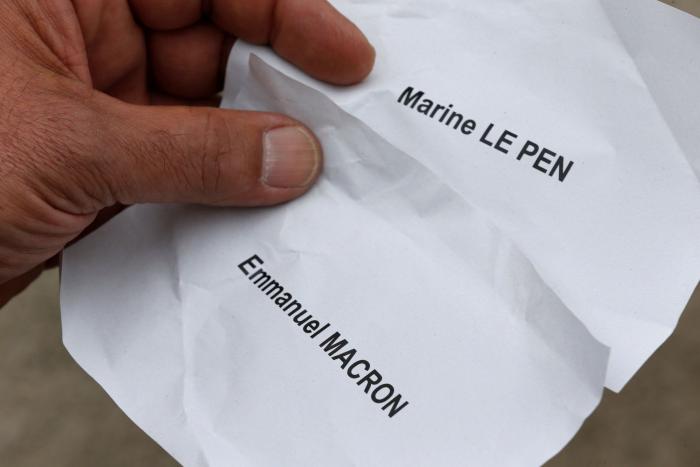 Marine LE PEN
Emmanuel MACRON